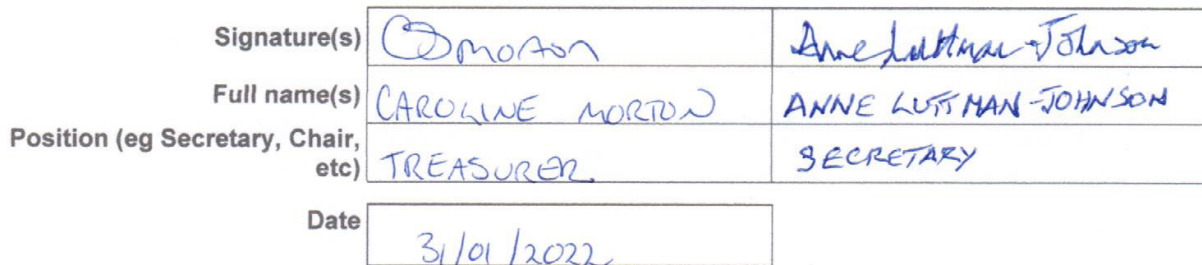 Signature(s) CJMorton Anne Luttman-Johnson
Full name(s) CAROLINE MORTON ANNE LUTTMAN-JOHNSON
Position (eg Secretary, Chair,
etc) TREASURER SECRETARY
Date 31/01/2022